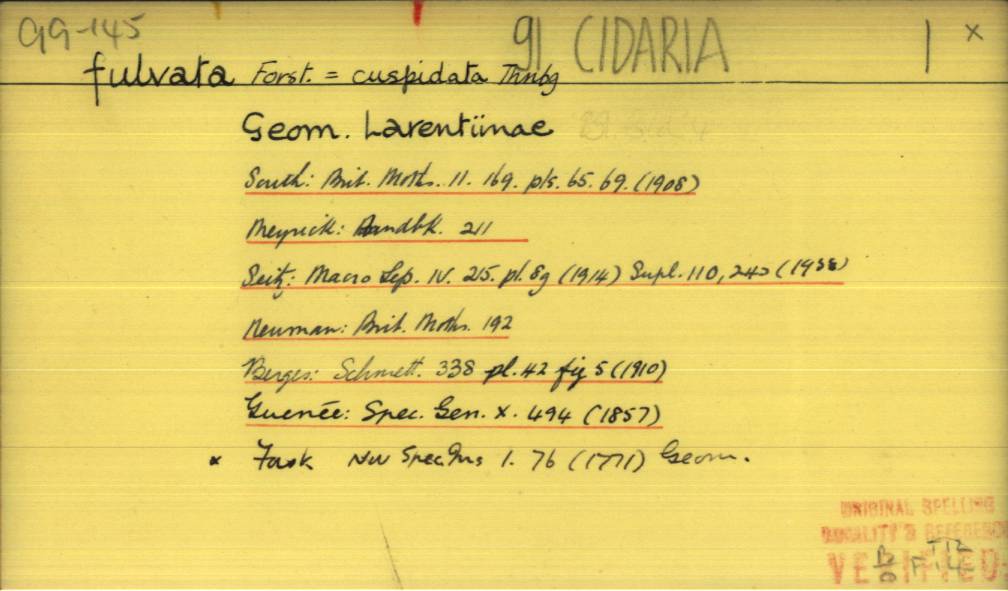 GG-145
91 CIDARIA 1 x
fulvata Forst. = cuspidata Thnbg
Geom. Larentiinae
South: Brit. Moths. 11. 169. pls. 65. 69. (1908)
Meyrick: Handbk. 211
Seitz: Macro Lep. IV. 215. pl. 8g (1914) Supl. 110, 240 (1938)
Neuman: Brit. Moths. 192
Berges: Schmett. 338 pl. 42 fig 5 (1910)
Guenée: Spec. Gen. X. 494 (1857)
x Forst Nov Spec Ins 1. 76 (1771) Geom.
ORIGINAL SPELLING
LOCALITY & REFERENCE
VERIFIED